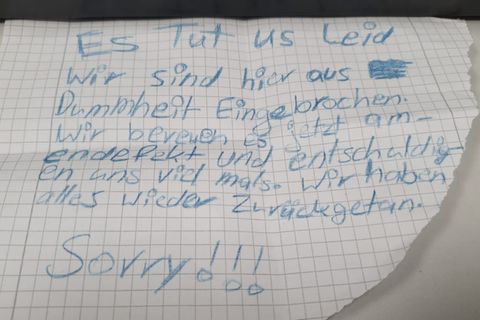 Es Tut us Leid
Wir sind hier aus
Dummheit Eingebrochen.
Wir bereuen Es jetzt am-
endefekt und entschuldig-
en uns viel mals. Wir haben
alles wieder Zurückgetan.
Sorry!!!